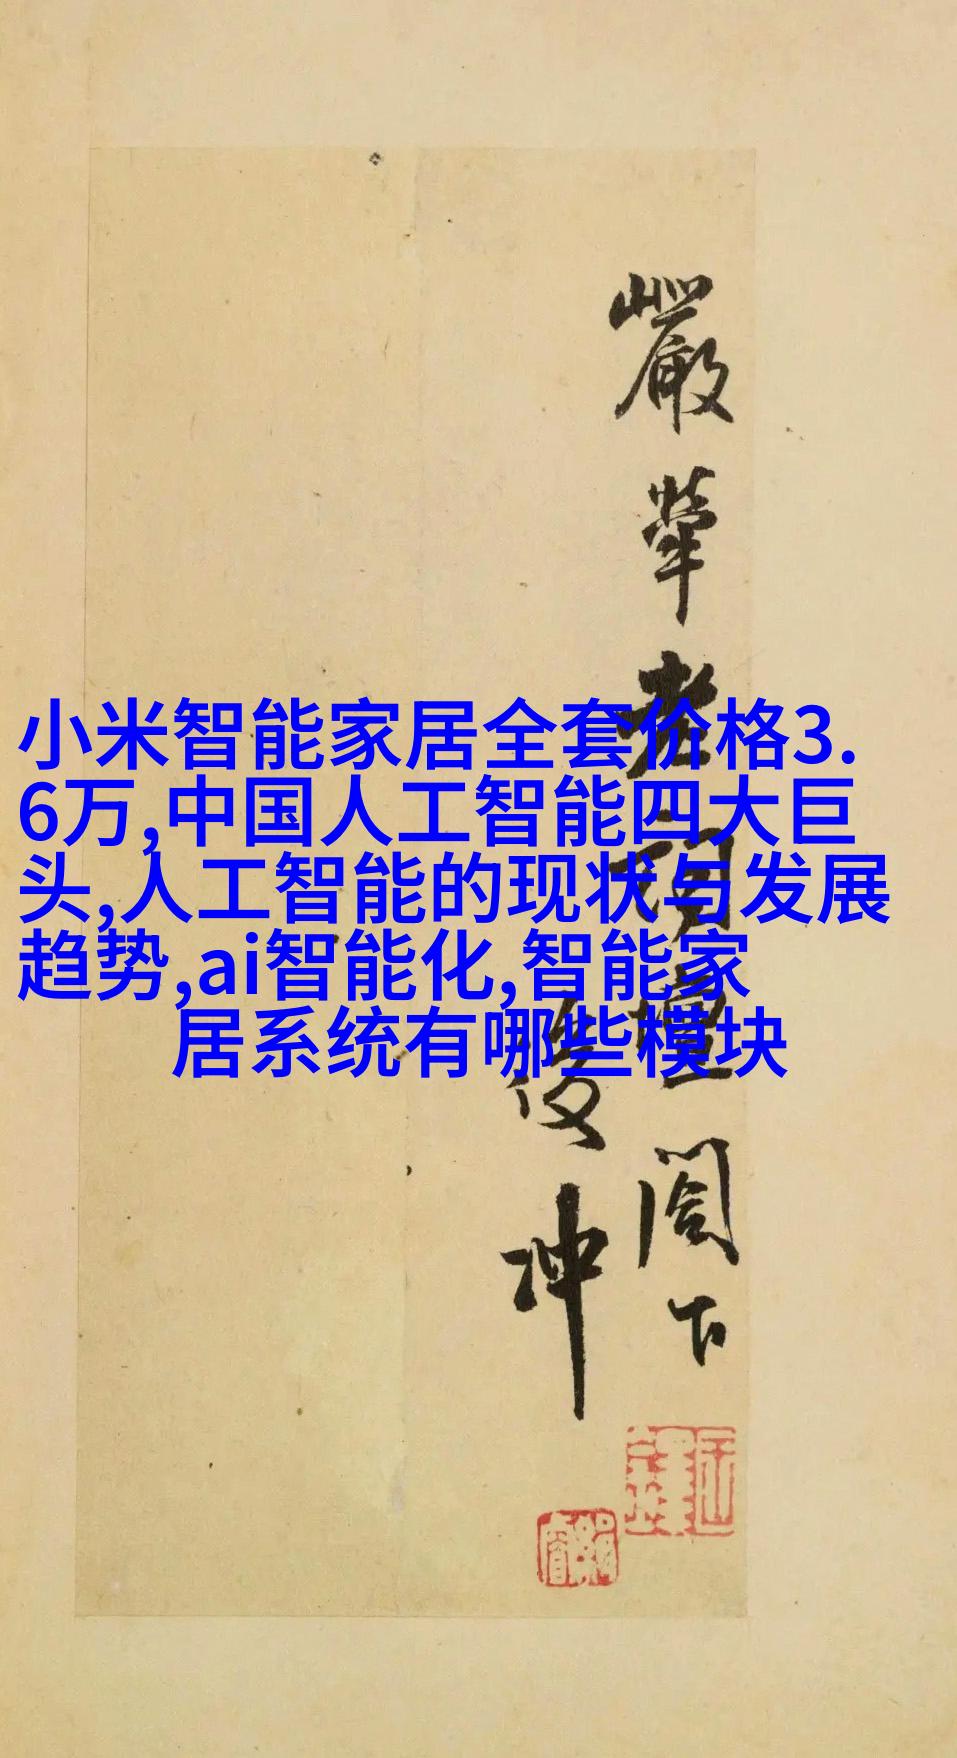 小米智能家居全套价格3.
6万,中国人工智能四大巨
头,人工智能的现状与发展
趋势,ai智能化,智能家
居系统有哪些模块
嚴犖老詞壇閣下
後冲